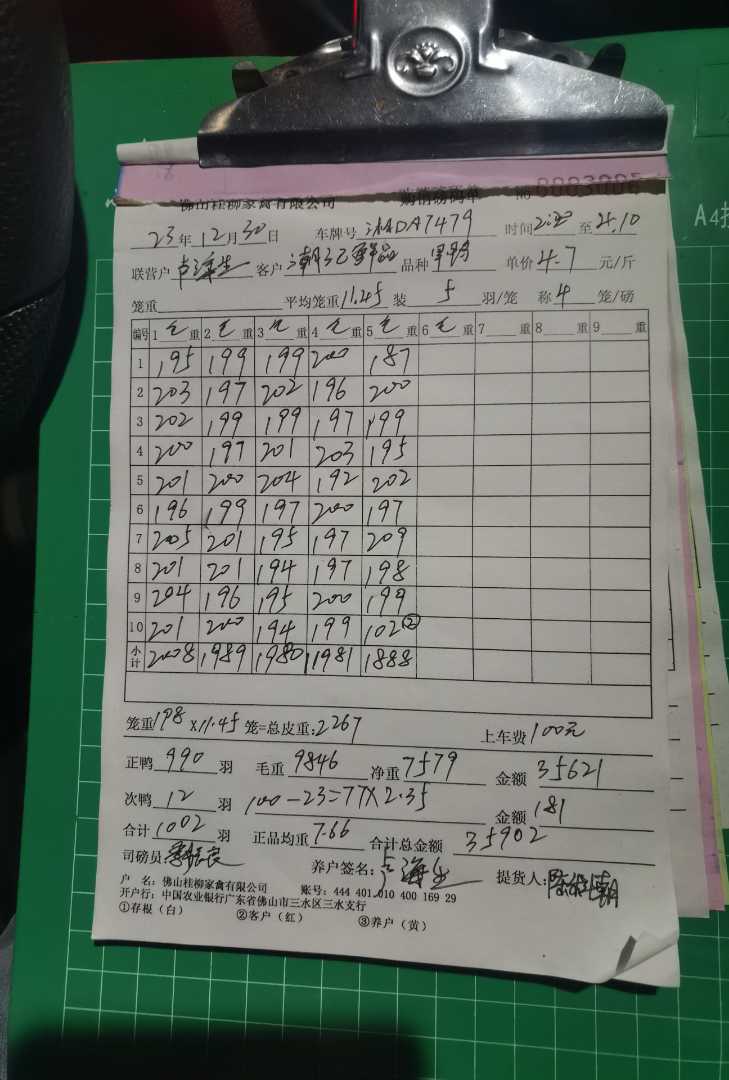 佛山桂柳家禽有限公司 购销磅码单 № 0003006
23年12月30日 车牌号 DA7479 时间 至 4.10
联营户 客户 潮记 品种 单价 4.7 元/斤
笼重 平均笼重 11.45 装 5 羽/笼 称 4 笼/磅
编号 1 毛 重 2 毛 重 3 毛 重 4 毛 重 5 毛 重 6 毛 重 7 重 8 重 9 重
1 195 199 199 200 187
2 203 197 202 196 200
3 202 199 199 197 199
4 200 197 201 203 195
5 201 200 204 192 202
6 196 199 197 200 197
7 205 201 195 197 209
8 201 201 194 197 198
9 204 196 195 200 199
10 201 200 194 199 102②
小计 2008 1989 1980 1981 1888
笼重 198 X 11.45 笼=总皮重: 2267 上车费 100元
正鸭 990 羽 毛重 9846 净重 7579 金额 35621
次鸭 12 羽 100-23=77X2.35 金额 181
合计 1002 羽 正品均重 7.66 合计总金额 35902
司磅员 养户签名: 提货人:
户 名: 佛山桂柳家禽有限公司 账号: 444 401 010 400 169 29
开户行: 中国农业银行广东省佛山市三水区三水支行
①存根（白） ②客户（红） ③养户（黄）
A4